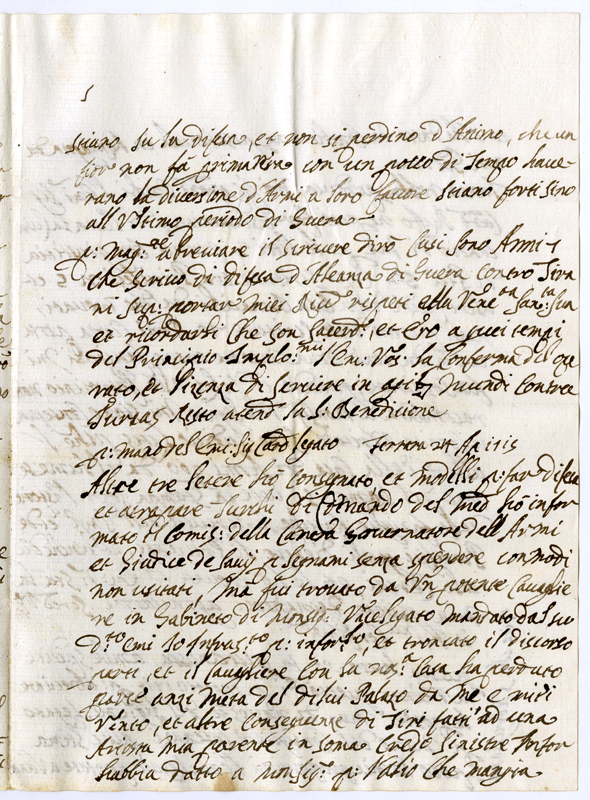 5
stiano su la difesa, et non si perdino d'Animo, che un
fior non fà primavera con un pocco di Tempo have-
rano la diversione d'Armi a loro favore stiano forti sino
all' Vltimo periodo di Guera -
p: Mag:re abreviare il scrivere dirò Casi sono Anni
che scrivo di difesa d'Aleanza di Guera contro Tira
ni sup: portar miei rispeti alla
et ricordarsi che son sacerd: et ero a quei tempi
del Principio Implo: l'Em: Vos: la conferma del ope
rato, et licenza di scrivere in Mundi contra
Turcas Resto atend la S: Benedicione
p: mano del Emi: Sig Card Legato Ferrara 24
Altre tre letere hò consegnato et modelli p: far difesa
et Turchi Di Comando del Med hò infor
mato il Comis: della Camera Governatore dell' Armi
et Giudice de Savij p segnami senza spendere con modi
non usitati, Mà fui trovato da Vn potente Cavaglie
re in Gabineto di Monsig: Vice legato mandato dal su
d:to Emi Io Infras:to p: infor et troncato il discorso
parti, et il Cavagliere con la nos:a Casa ha perduto
parte anzi metà del di lui Palazo da Me e miei
Vinto, et altre Conseguenze di Tiri fatti ad una
mia parente in soma Credo sinistre Infor
habbia datto a Monsig: p: l'atio che mangia